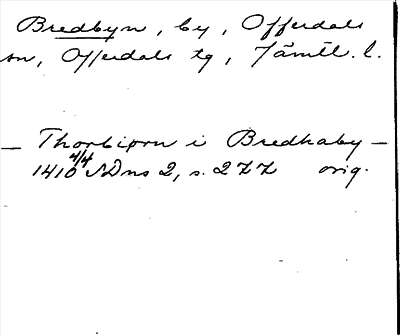 Bredbyn, by, Offerdals
sn, Offerdals tg, Jämtl. l.
— Thorbiorn i Bredhaby —
1410 4/4 SDns 2, s. 277 orig.